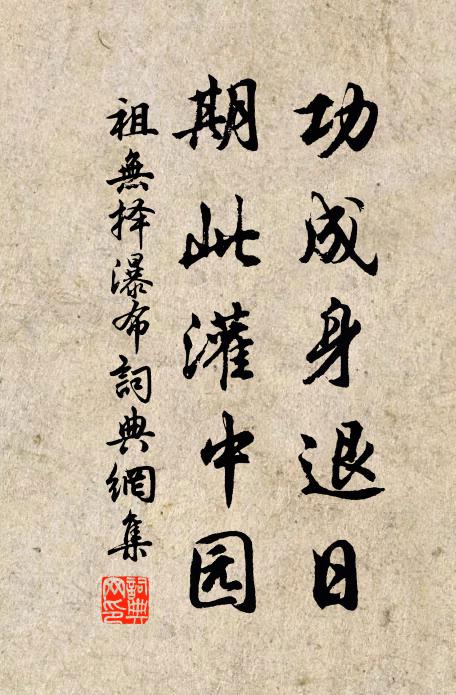 功成身退日
期此灌中园
祖無择瀑布詞典網集
詞典网印